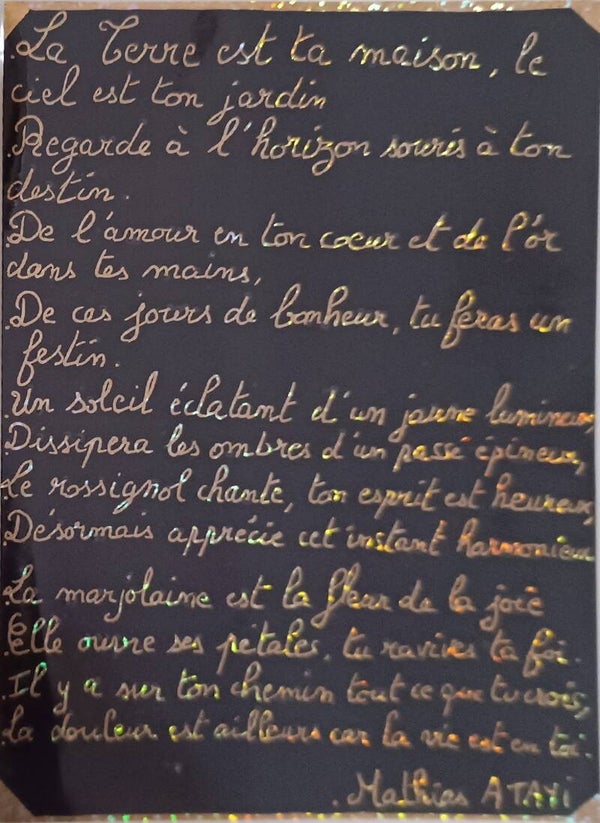 La Terre est ta maison, le
ciel est ton jardin
Regarde à l'horizon souris à ton
destin.
De l'amour en ton coeur et de l'or
dans tes mains,
De ces jours de bonheur, tu feras un
festin.
Un soleil éclatant d'un jaune lumineux,
Dissipera les ombres d'un passé épineux,
Le rossignol chante, ton esprit est heureux,
Désormais apprécie cet instant harmonieux
La marjolaine est la fleur de la joie
Elle ouvre ses pétales, tu ravives ta foi.
Il y a sur ton chemin tout ce que tu crois,
La douleur est ailleurs car la vie est en toi.
Mathias ATAYI